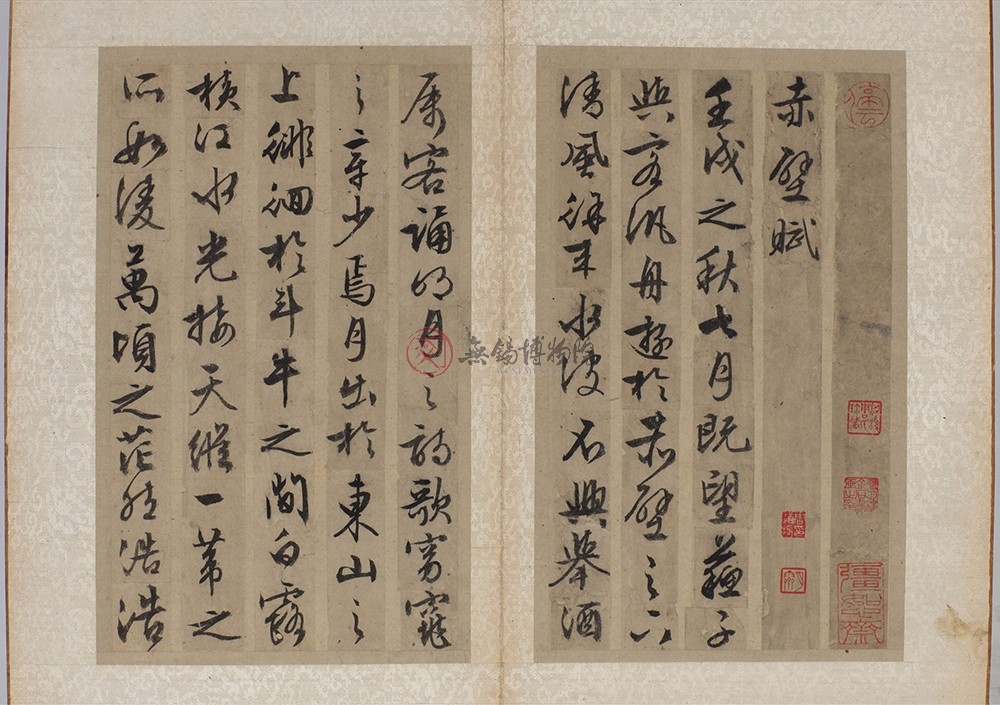 赤壁賦
壬戌之秋七月既望蘇子
與客汎舟遊於赤壁之下
清風徐来水波不興舉酒
属客誦明月之詩歌窈窕
之章少焉月出於東山之
上徘徊於斗牛之間白露
横江水光接天縱一葦之
所如凌萬頃之茫然浩浩
無錫博物院